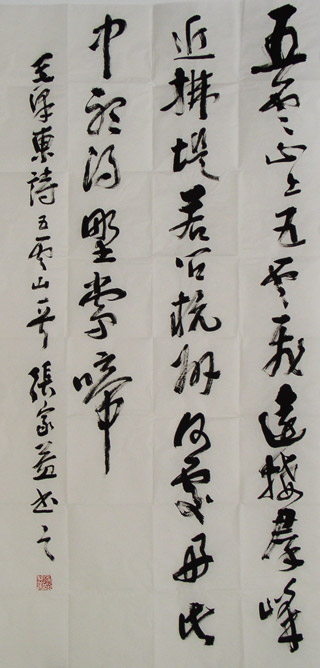 五雲山上五雲飛遠接羣峰
近拂堤若问杭州何處好此
中听得野莺啼
毛泽東詩五雲山一首 張家益书之